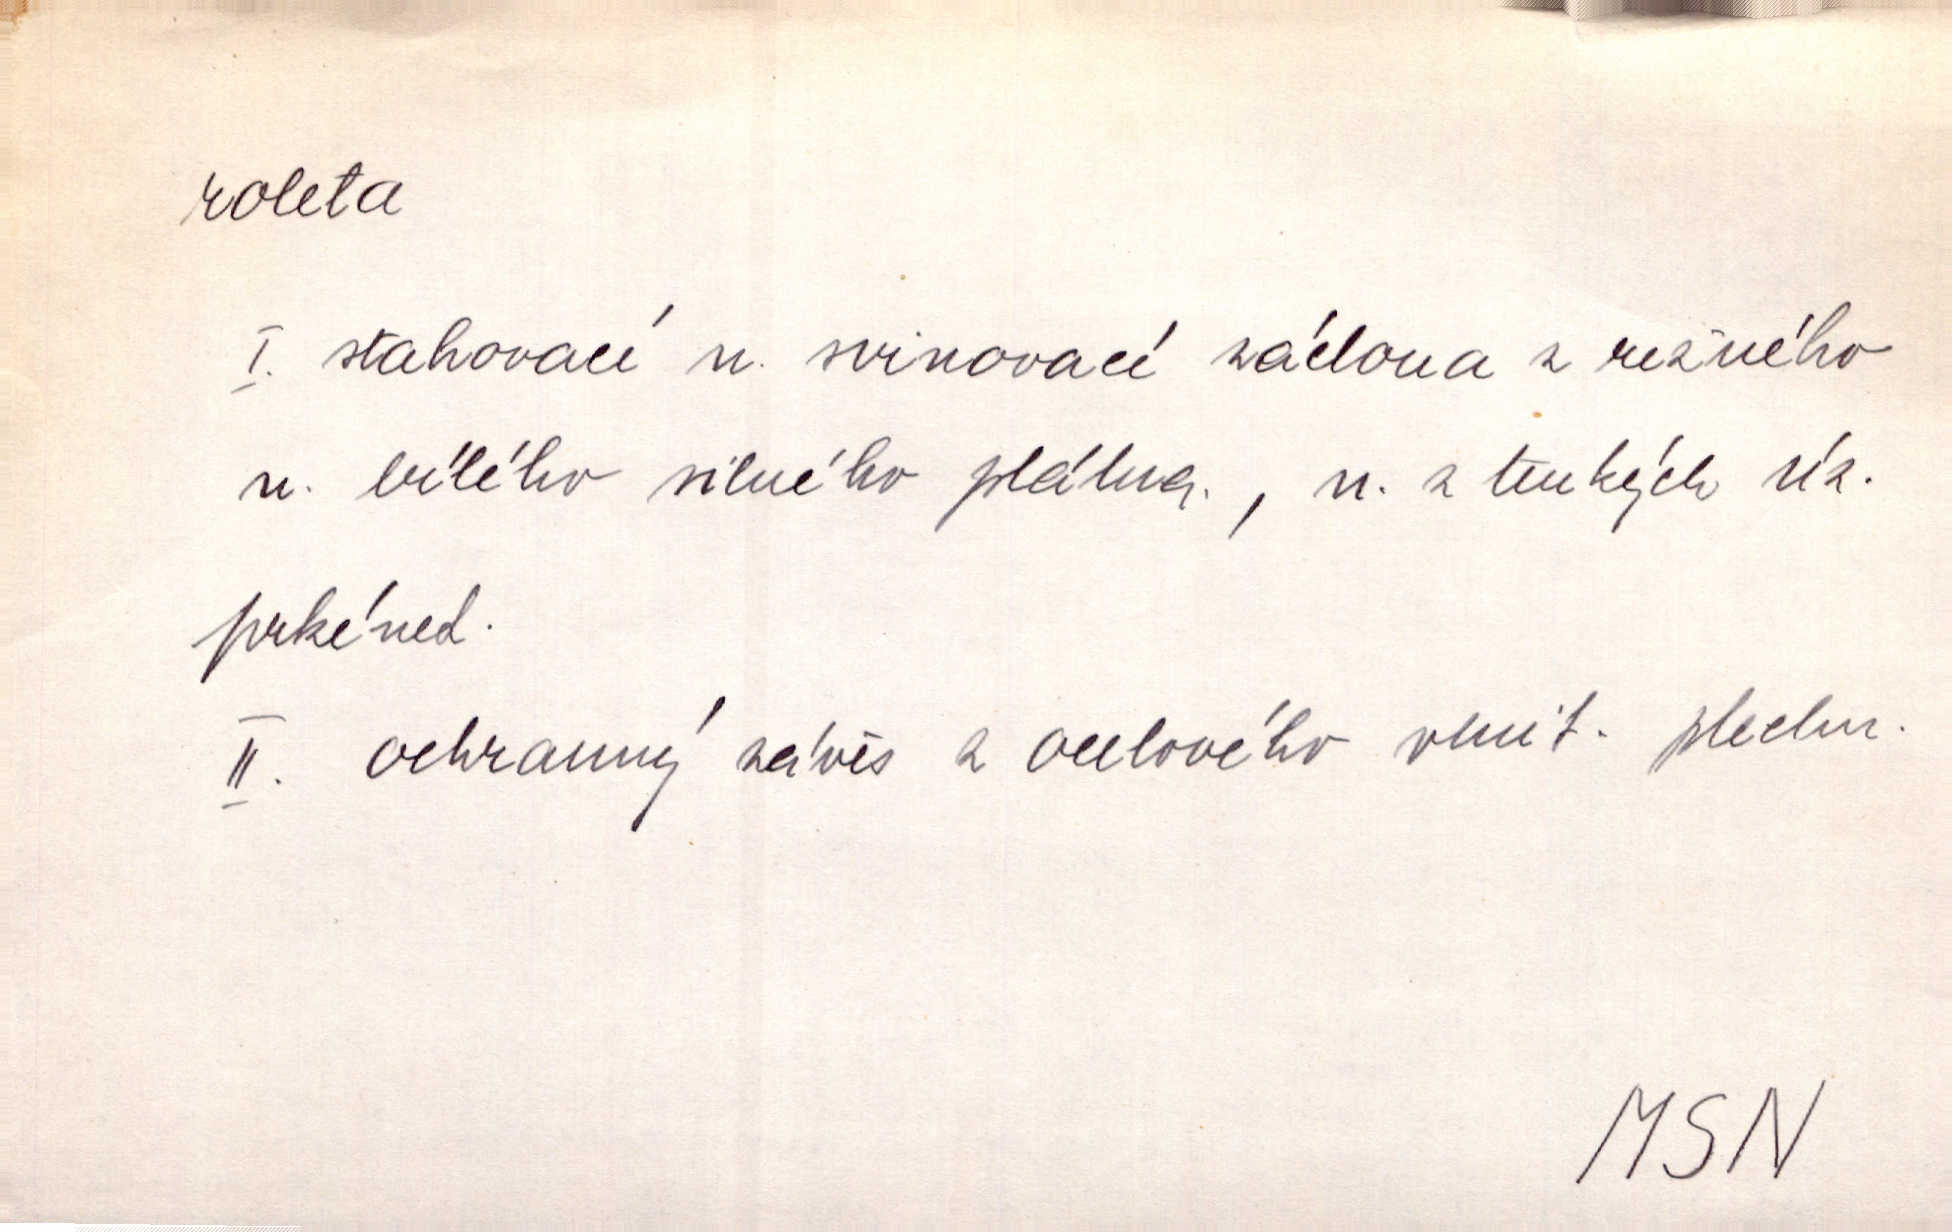 roleta
I. stahovací n. svinovací záclona z režného
n. bílého silného plátna., n. z tenkých úz.
prkének.
II. ochranný závěs z ocelového vlnit. plechu.
MSN